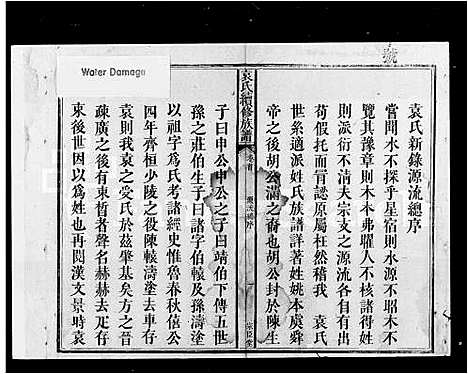 號
Water Damage
袁氏新錄源流總序
嘗聞水不探乎星宿則水源不昭木不
覽其豫章則木本弗曜人不核諸得姓
則派衍不清夫宗支之源流各自有出
苟假托而冒認原屬枉然稽我　袁氏
世系適派姓氏族譜詳著姓姚本虞舜
帝之後胡公滿之裔也胡公封於陳生
袁氏續修族譜
卷首
宗臣堂
子曰申公申公之子曰靖伯下傳五世
孫之莊伯生子曰諸字伯轅及孫濤塗
以祖字為氏考諸經史惟魯春秋僖公
四年齊桓少陵之役陳轅濤塗去車存
袁則我袁之受氏於茲肇基矣方晉
疎廣之後有束晳者聲名赫赫去疋存
束後世因以為姓也再閱漢文景時袁